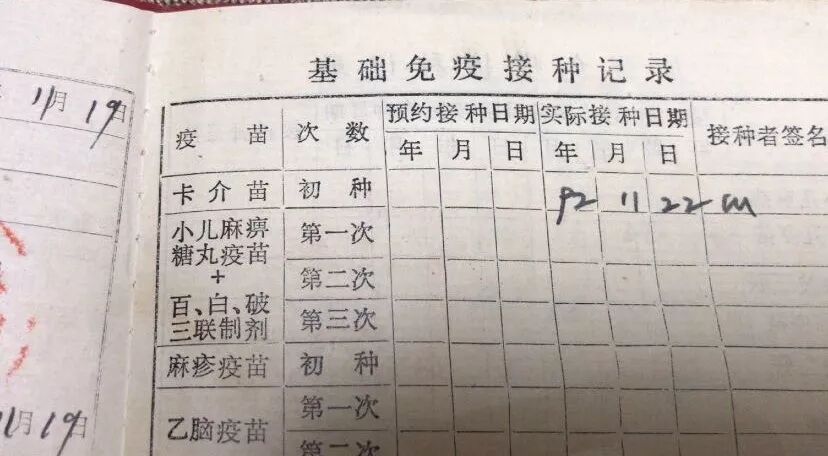 11月19日
11月19日
基础免疫接种记录
疫苗 次数 预约接种日期 实际接种日期 接种者签名
年 月 日 年 月 日
卡介苗 初种 92 11 22
小儿麻痹 第一次
糖丸疫苗
+ 第二次
百、白、破
三联制剂 第三次
麻疹疫苗 初种
乙脑疫苗 第一次
第二次